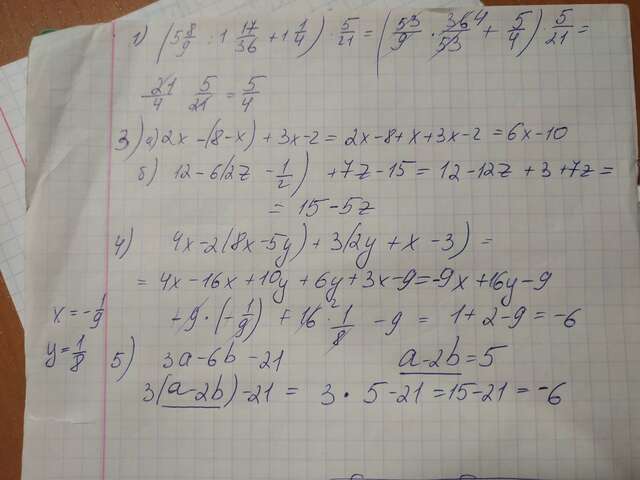 1) (5 8/9 : 1 17/36 + 1 1/4) · 5/21 = (53/9 · 36 4/53 + 5/4) 5/21 =
21/4 5/21 = 5/4
3) а) 2x - (8-x) + 3x - 2 = 2x - 8 + x + 3x - 2 = 6x - 10
б) 12 - 6(2z - 1/2) + 7z - 15 = 12 - 12z + 3 + 7z =
= 15 - 5z
4) 4x - 2(8x - 5y) + 3(2y + x - 3) =
= 4x - 16x + 10y + 6y + 3x - 9 = -9x + 16y - 9
x = -1/9 + 9 · (-1/9) + 16 2 · 1/8 - 9 = 1 + 2 - 9 = -6
y = 1/8 5) 3a - 6b - 21 a - 2b = 5
3(a - 2b) - 21 = 3 · 5 - 21 = 15 - 21 = -6